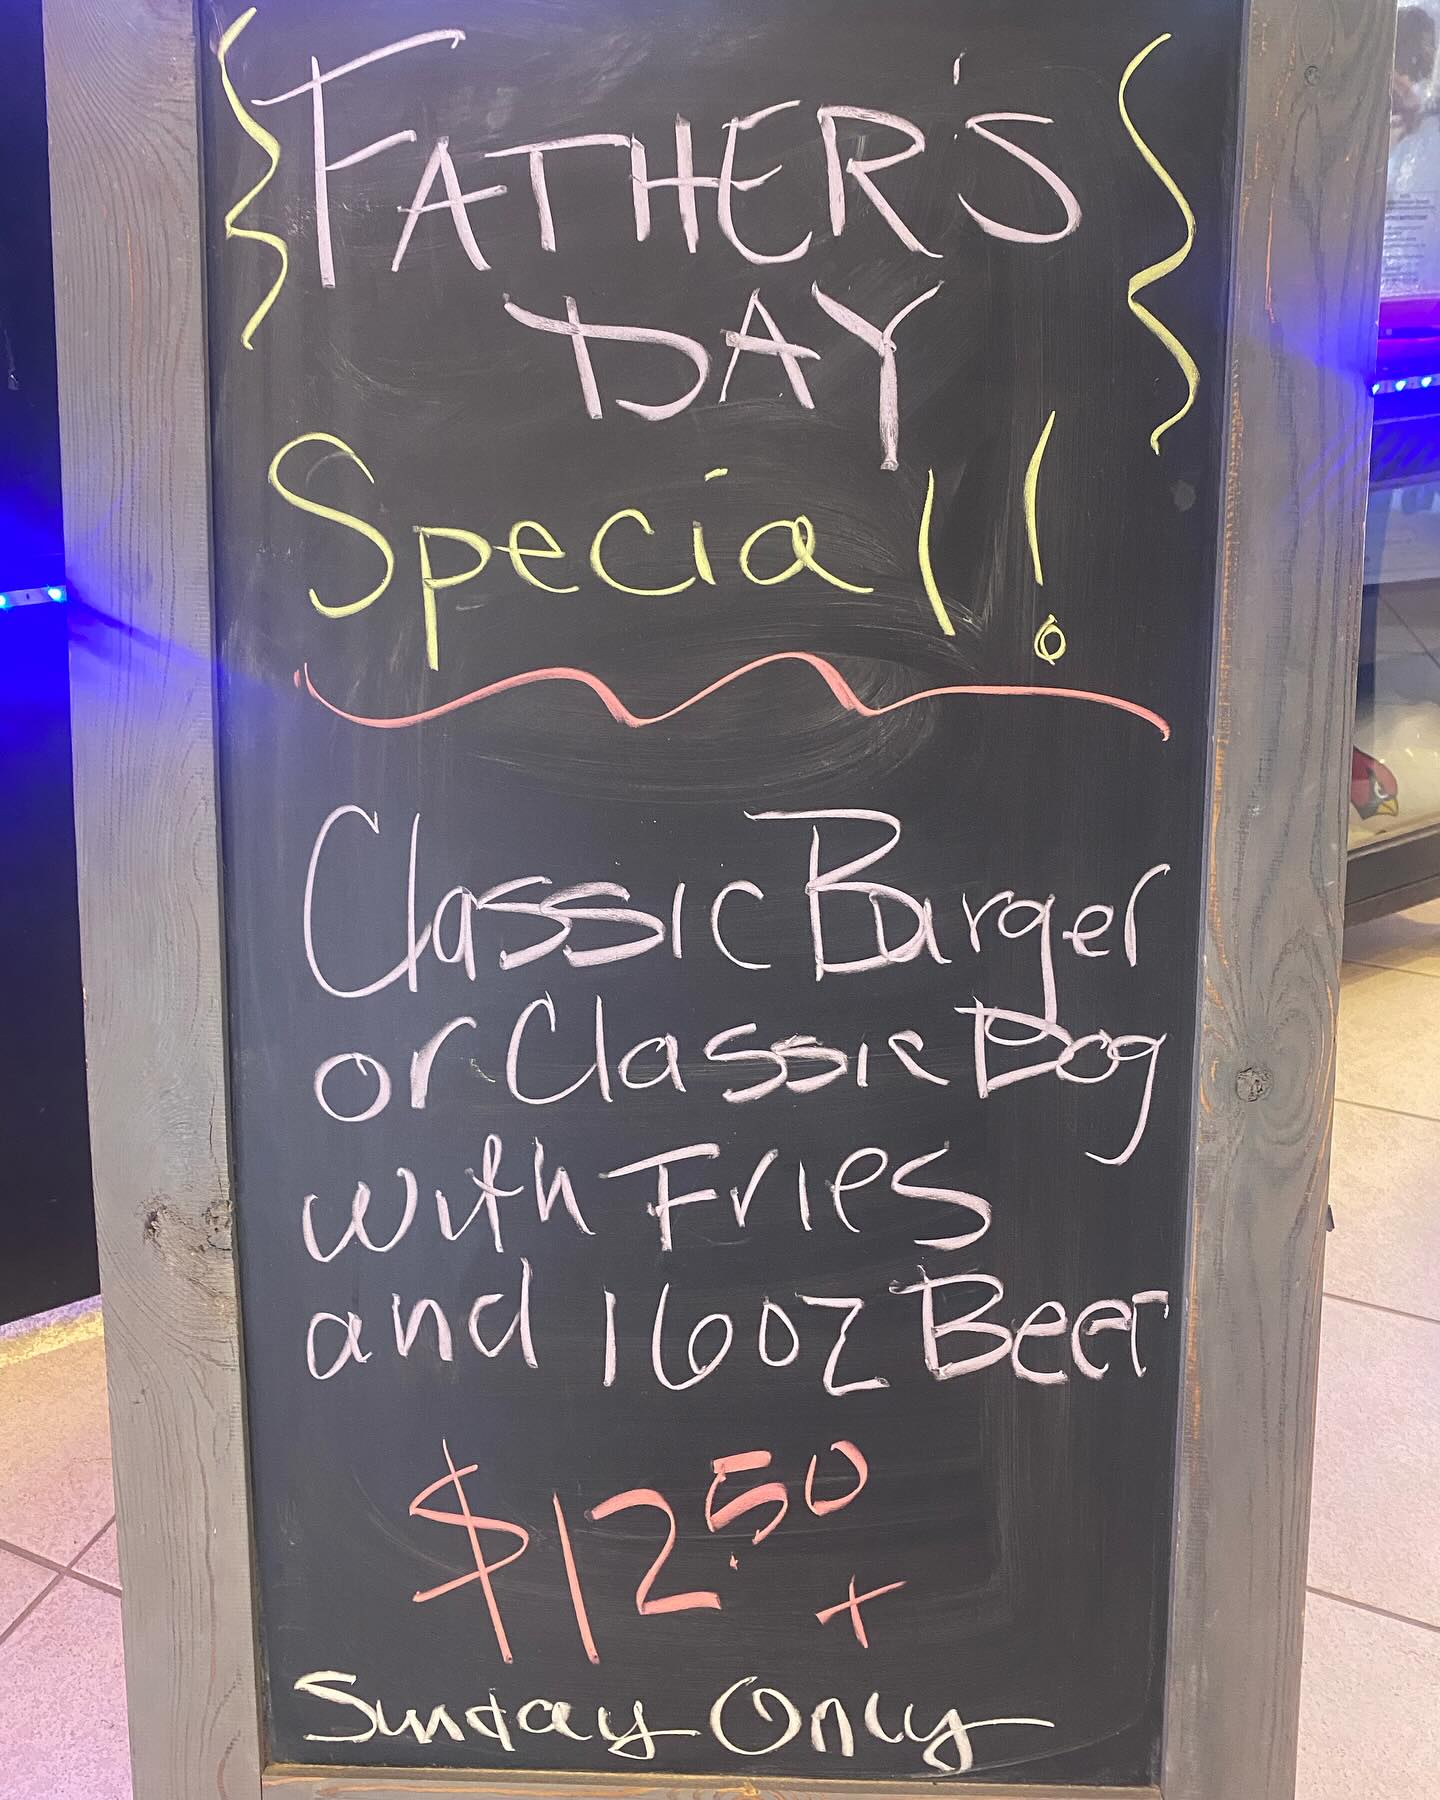 FATHER'S
DAY
Special!
Classic Burger
or Classic Dog
with Fries
and 16oz Beer
$12.50+
Sunday Only